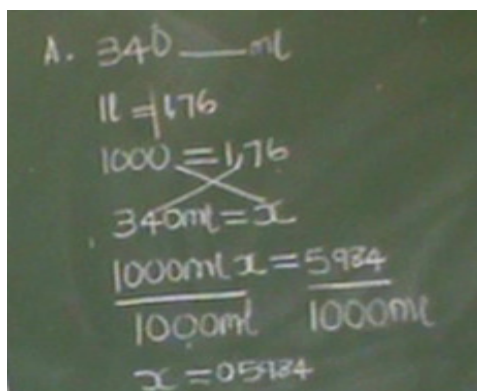 A. 340 ___ ml
1l = 1,76
1000 = 1,76
340ml = x
1000ml x = 5984
1000ml 1000ml
x = 05984